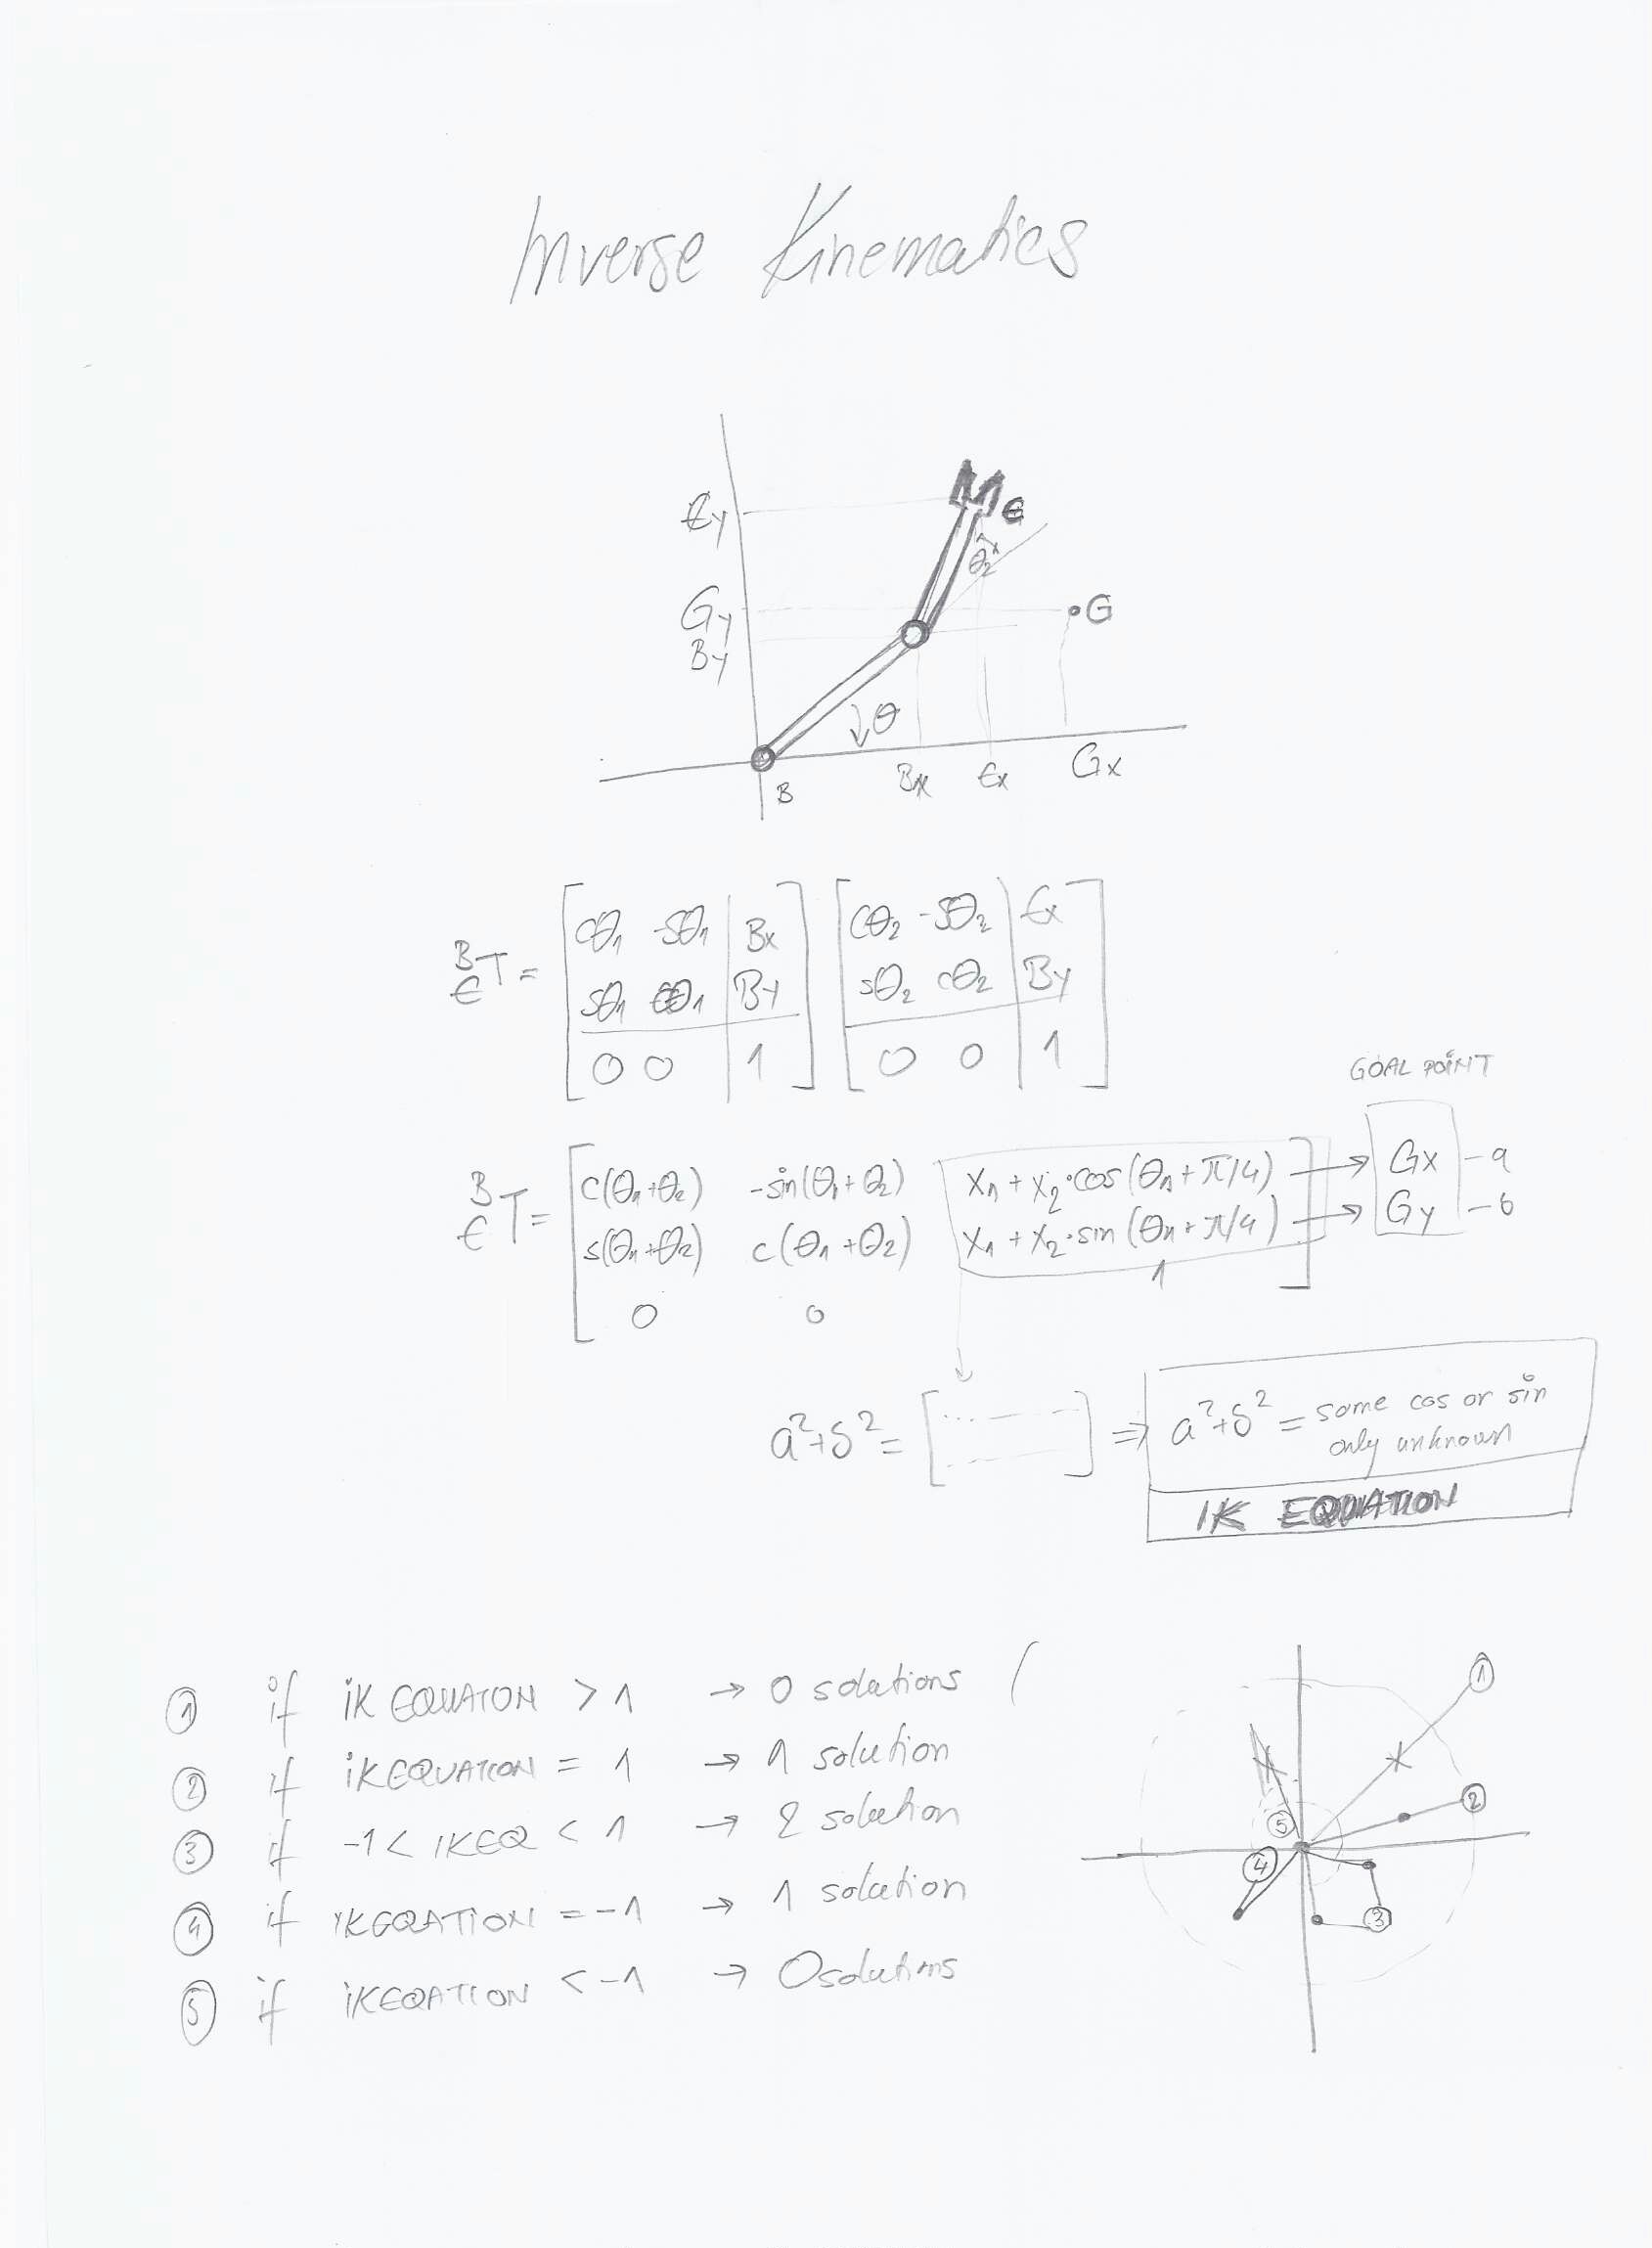 Inverse Kinematics
Ey
E
θ2
Gy
G
By
θ
B
Bx
Ex
Gx
B/E T = [ cθ1 -sθ1 | Bx ] [ cθ2 -sθ2 | Ex ]
sθ1 cθ1 | By sθ2 cθ2 | By
0 0 | 1 0 0 | 1
GOAL POINT
B/E T = [ c(θ1+θ2) -sin(θ1+θ2) x1 + x2·cos(θ1+π/4) ] → Gx - a
s(θ1+θ2) c(θ1+θ2) x1 + x2·sin(θ1+π/4) → Gy - b
0 0 1
a²+b² = [ ... ] ⇒ a²+b² = some cos or sin
only unknown
IK EQUATION
① if iK EQUATON > 1 → 0 solutions (
② if iKEQUATION = 1 → 1 solution
③ if -1 < IKEQ < 1 → 2 solution
④ if IKEQATION = -1 → 1 solution
⑤ if iKEQATION < -1 → 0 solutions
①
②
⑤
④
③